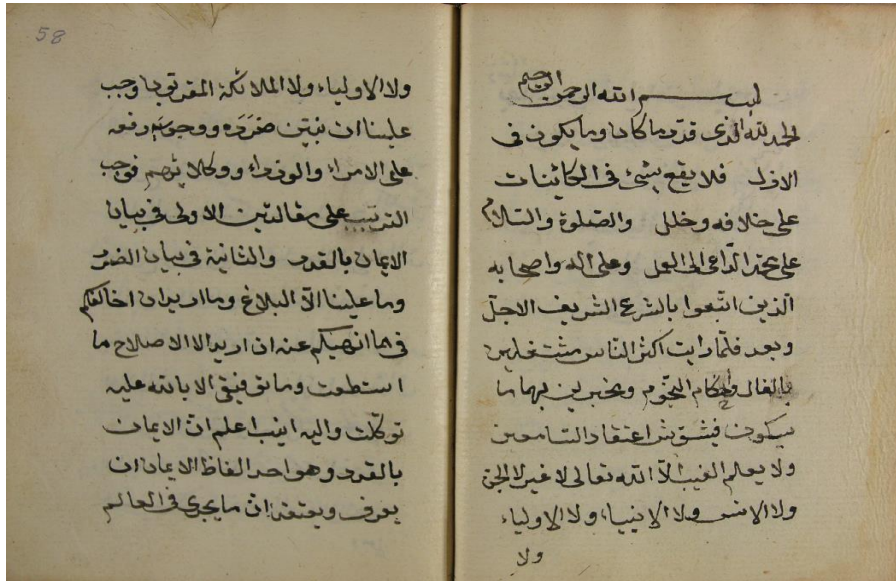 بسم الله الرحمن الرحيم
الحمد لله الذى قدر ما كان وما يكون فى
الازل فلا يقع شئ فى الكائنات
على خلافه وخلل والصلوة والسلام
على محمد الداعى الى العمل وعلى اله واصحابه
الذين اتبعوا بالشرع الشريف الاجل
وبعد فلما رايت اكثر الناس مشتغلين
بالفال واحكام النجوم ومخبرين بهما ما
سيكون فيشوش اعتقاد السامعين
ولا يعلم الغيب الا الله تعالى لا غير لا الجن
ولا الانس ولا الانبياء ولا الاولياء
ولا
58
ولا الاولياء ولا الملائكة المقربون وجب
علينا ان نبين ضرره ووجوب رفعه
على الامراء والوزراء ووكلائهم فوجب
الترتيب على مقالتين الاولى فى بيان
الايمان بالقدر والثانية فى بيان الضرر
وما علينا الا البلاغ وما اريد ان اخالفكم
فى ما انهيكم عنه ان اريد الا الاصلاح ما
استطعت وما توفيقى الا بالله عليه
توكلت واليه انيب اعلم ان الايمان
بالقدر وهو احد الفاظ الايمان ان
يعرف ويعتقد ان ما يجرى فى العالم